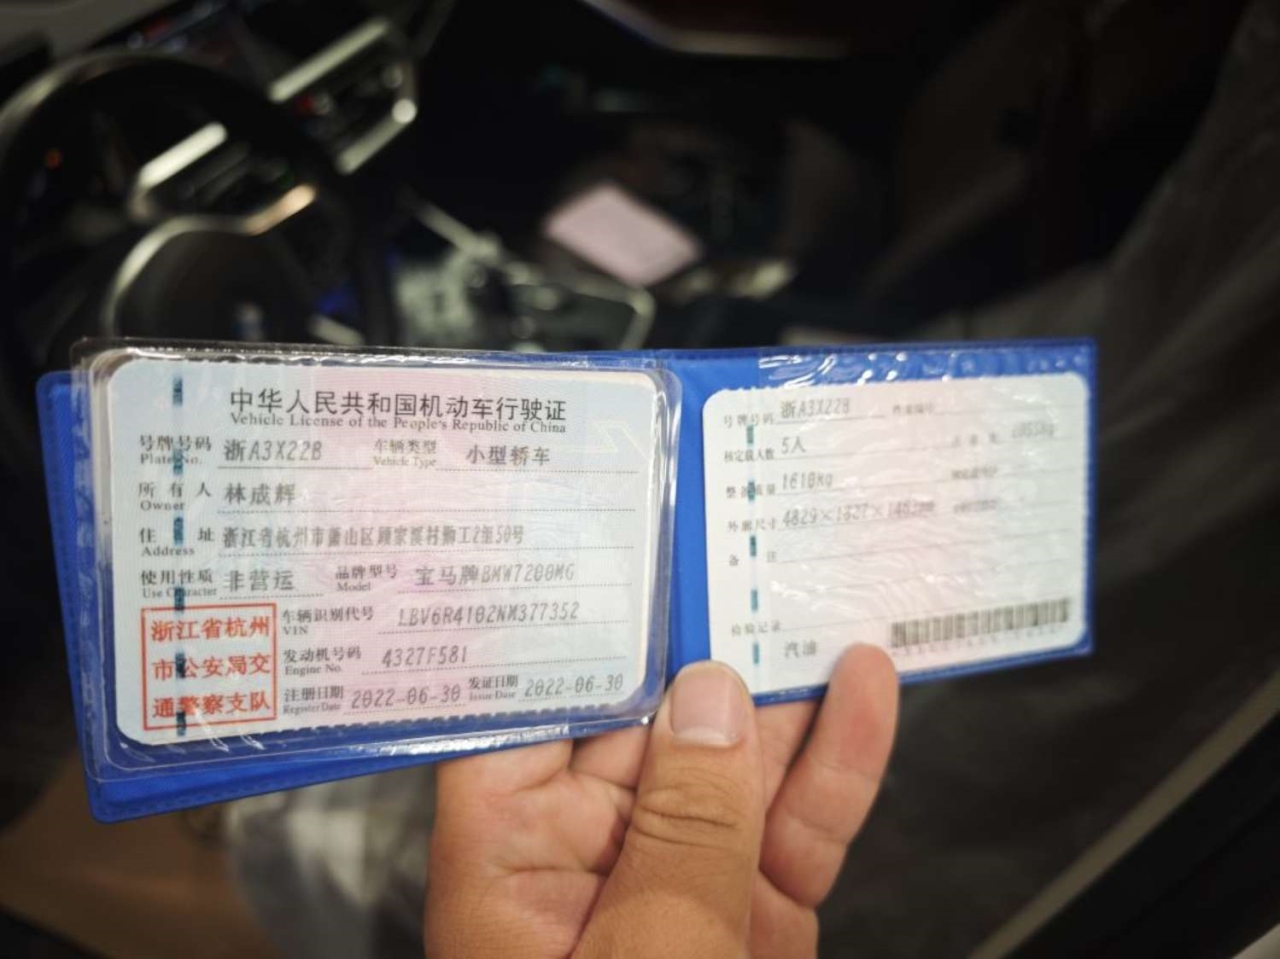 中华人民共和国机动车行驶证
Vehicle License of the People's Republic of China
号牌号码 浙A3X22B 车辆类型 小型轿车
Plate No. Vehicle Type
所有人 林成辉
Owner
住址 浙江省杭州市萧山区顾家溪村 2组50号
Address
使用性质 非营运 品牌型号 宝马牌BMW7200MG
Use Character Model
浙江省杭州
市公安局交
通警察支队
车辆识别代号 LBV6R4102NM377352
VIN
发动机号码 4327F581
Engine No.
注册日期 2022-06-30 发证日期 2022-06-30
Register Date Issue Date
号牌号码 浙A3X22B
核定载人数 5人
整备质量 1610Kg
外廓尺寸 4829×1827×
备注
检验记录
汽油